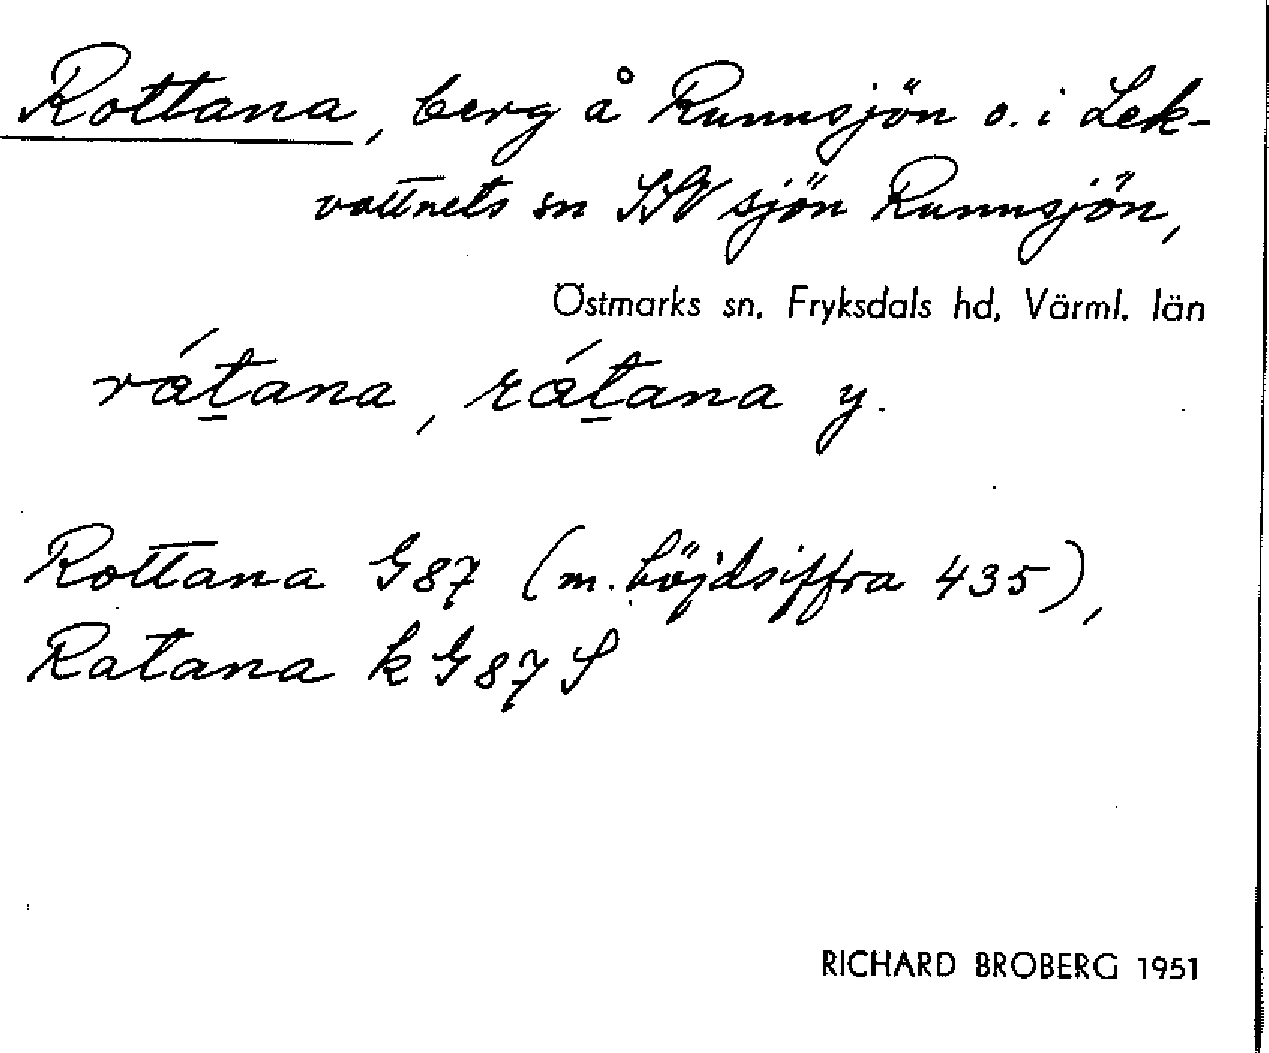 Rottana, berg å Runnsjön o. i Lek-
vattnets sn SSV sjön Runnsjön,
Östmarks sn. Fryksdals hd, Värml. län
rátana, rátana y.
Rottana G87 (m. höjdsiffra 435),
Ratana k G87 S
RICHARD BROBERG 1951